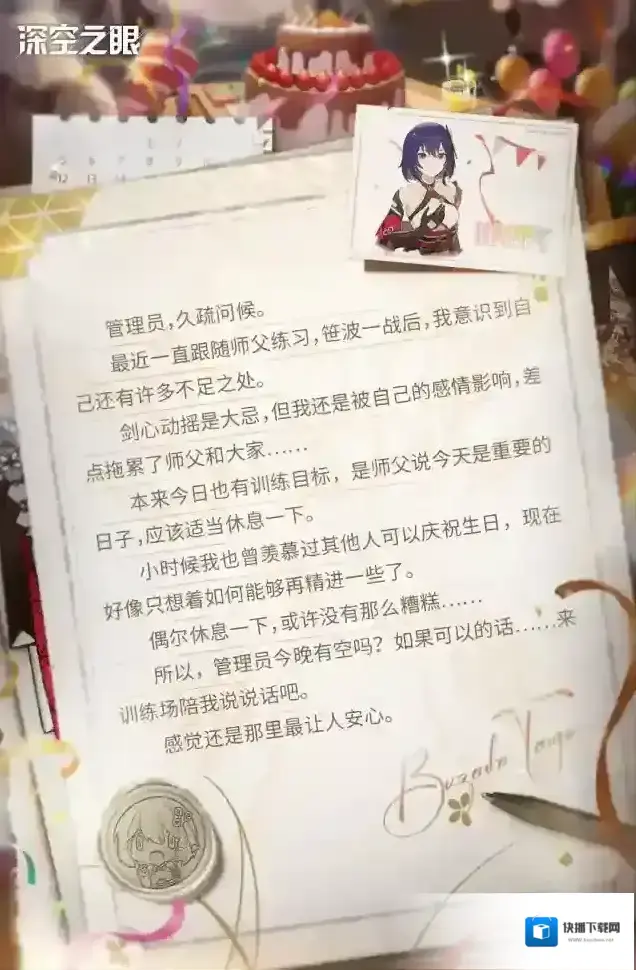 深空之眼
管理员,久疏问候。
最近一直跟随师父练习,笹波一战后,我意识到自
己还有许多不足之处。
剑心动摇是大忌,但我还是被自己的感情影响,差
点拖累了师父和大家……
本来今日也有训练目标，是师父说今天是重要的
日子,应该适当休息一下。
小时候我也曾羡慕过其他人可以庆祝生日，现在
好像只想着如何能够再精进一些了。
偶尔休息一下,或许没有那么糟糕……
所以，管理员今晚有空吗？如果可以的话……来
训练场陪我说说话吧。
感觉还是那里最让人安心。
快播下载网